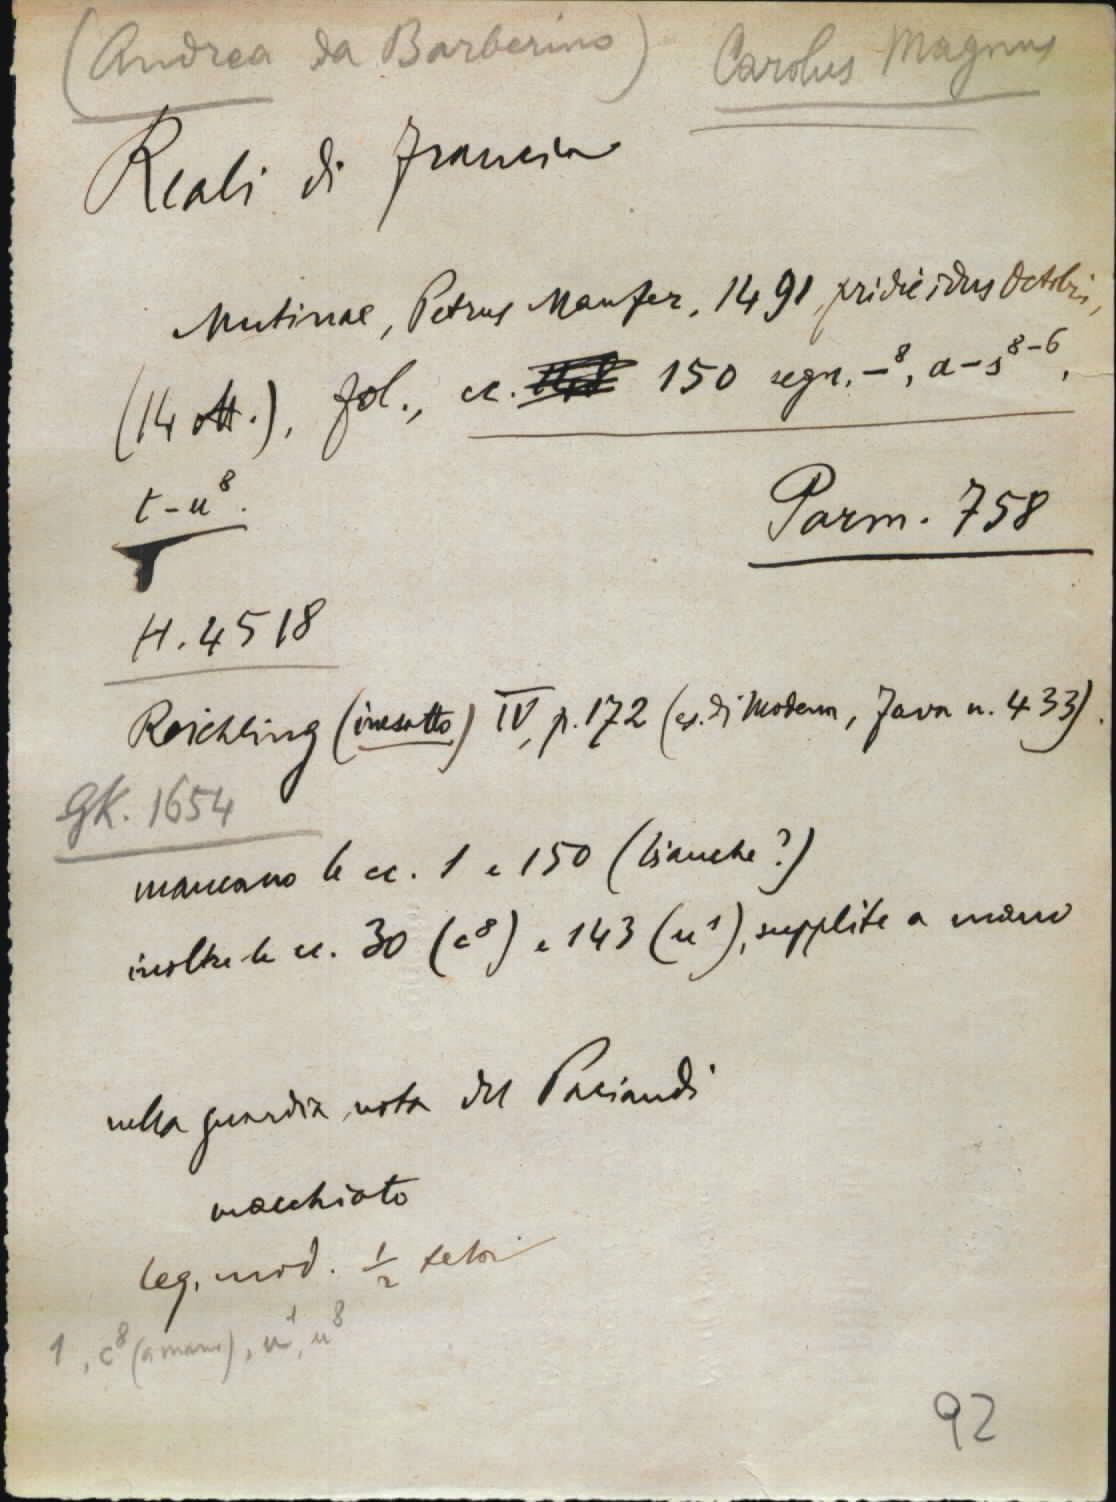 (Andrea da Barberino) Carolus Magnus
Reali di Francia
Mutinae, Petrus Maufer, 1491, pridie idus Octobris,
(14 ott.), fol., cc. 148 150 segn. –⁸, a–s⁸⁻⁶,
t–u⁸.
Parm. 758
H. 4518
Reichling (inesatto) IV, p. 172 (es. di Modena, Fava n. 433).
GK. 1654
mancano le cc. 1 e 150 (bianche?)
inoltre le cc. 30 (c⁸) e 143 (u¹), supplite a mano
nella guardia nota del Paciaudi
macchiato
leg. mod. 1/2
1, c⁸ (a mano), u¹, u⁸
92